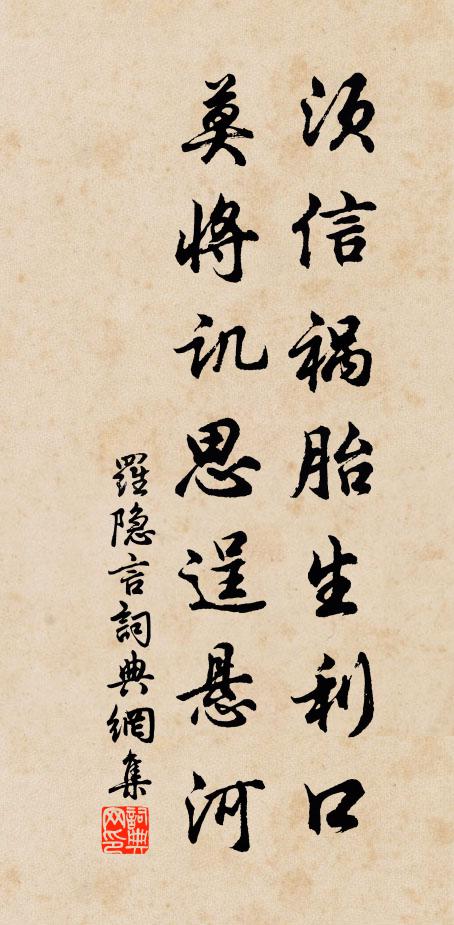 须信祸胎生利口
莫将讥思逞悬河
羅隐言詞典網集
詞典网印